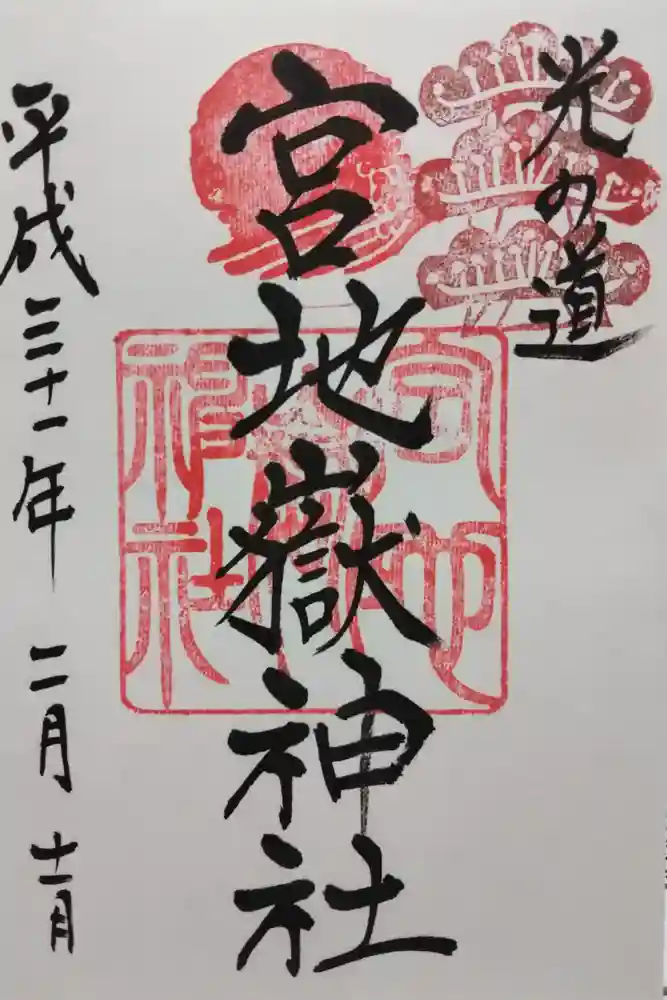 光の道
宮地嶽神社
平成三十一年 二月 十一日
宮地
嶽
神社